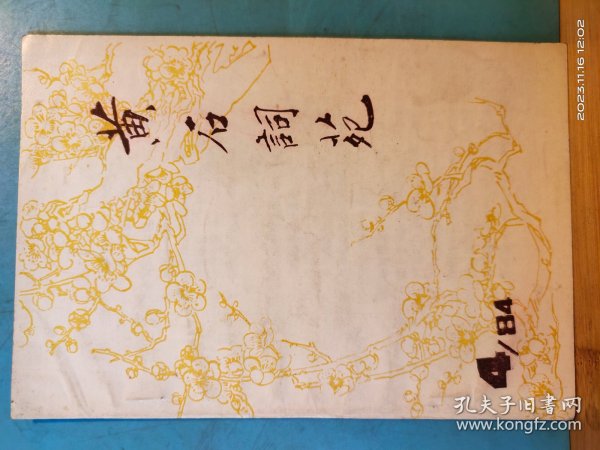 黄石詞苑
4/84
2023.11.16 12:02
孔夫子旧書网
www.kongfz.com